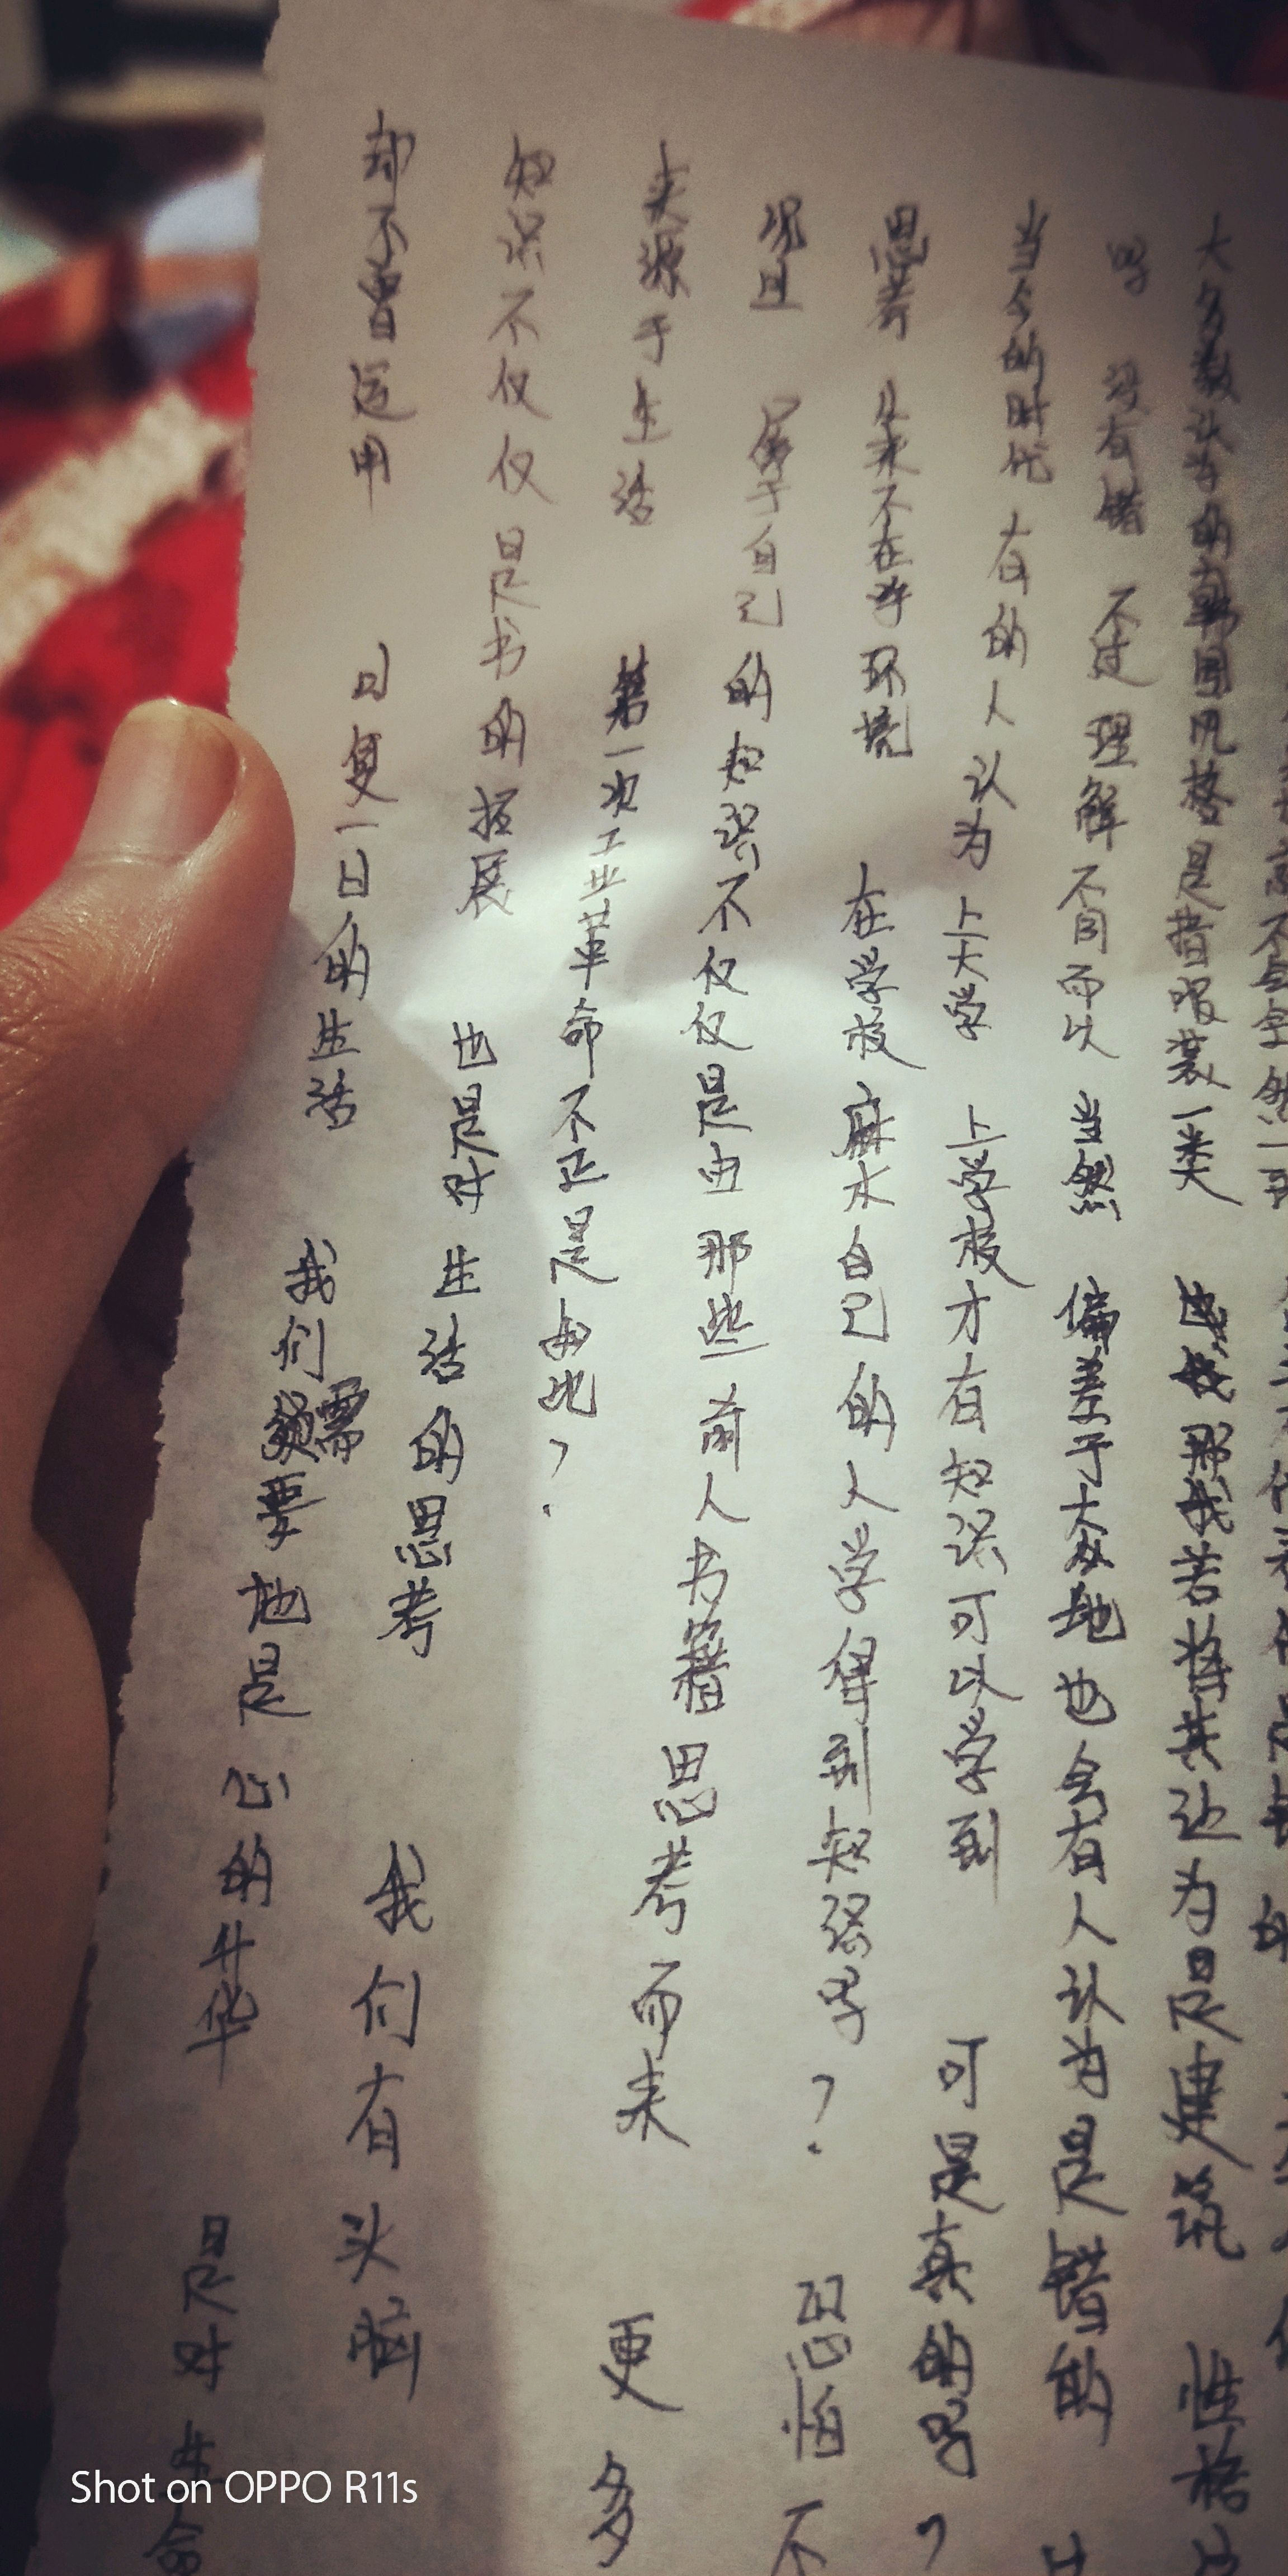 大多数认为的韩国风格是指服装一类 那我若将其让为是建筑 性格
号 没有错 不过理解不同而以 当然 偏差于大众地 也会有人认为是错的
当今的时代 有的人认为 上大学 上学校才有知识可以学到 可是真的吗?
思考 从来不在乎环境 在学校麻木自己的人学得到知识吗? 恐怕不
况且 属于自己的知识不仅仅是由那些前人书籍思考而来 更多
来源于生活 第一次工业革命不正是由此?.
知识不仅仅是书的拓展 也是对生活的思考 我们有头脑
却不曾运用 日复一日的生活 我们需要 她是心的升华 是对生命
Shot on OPPO R11s